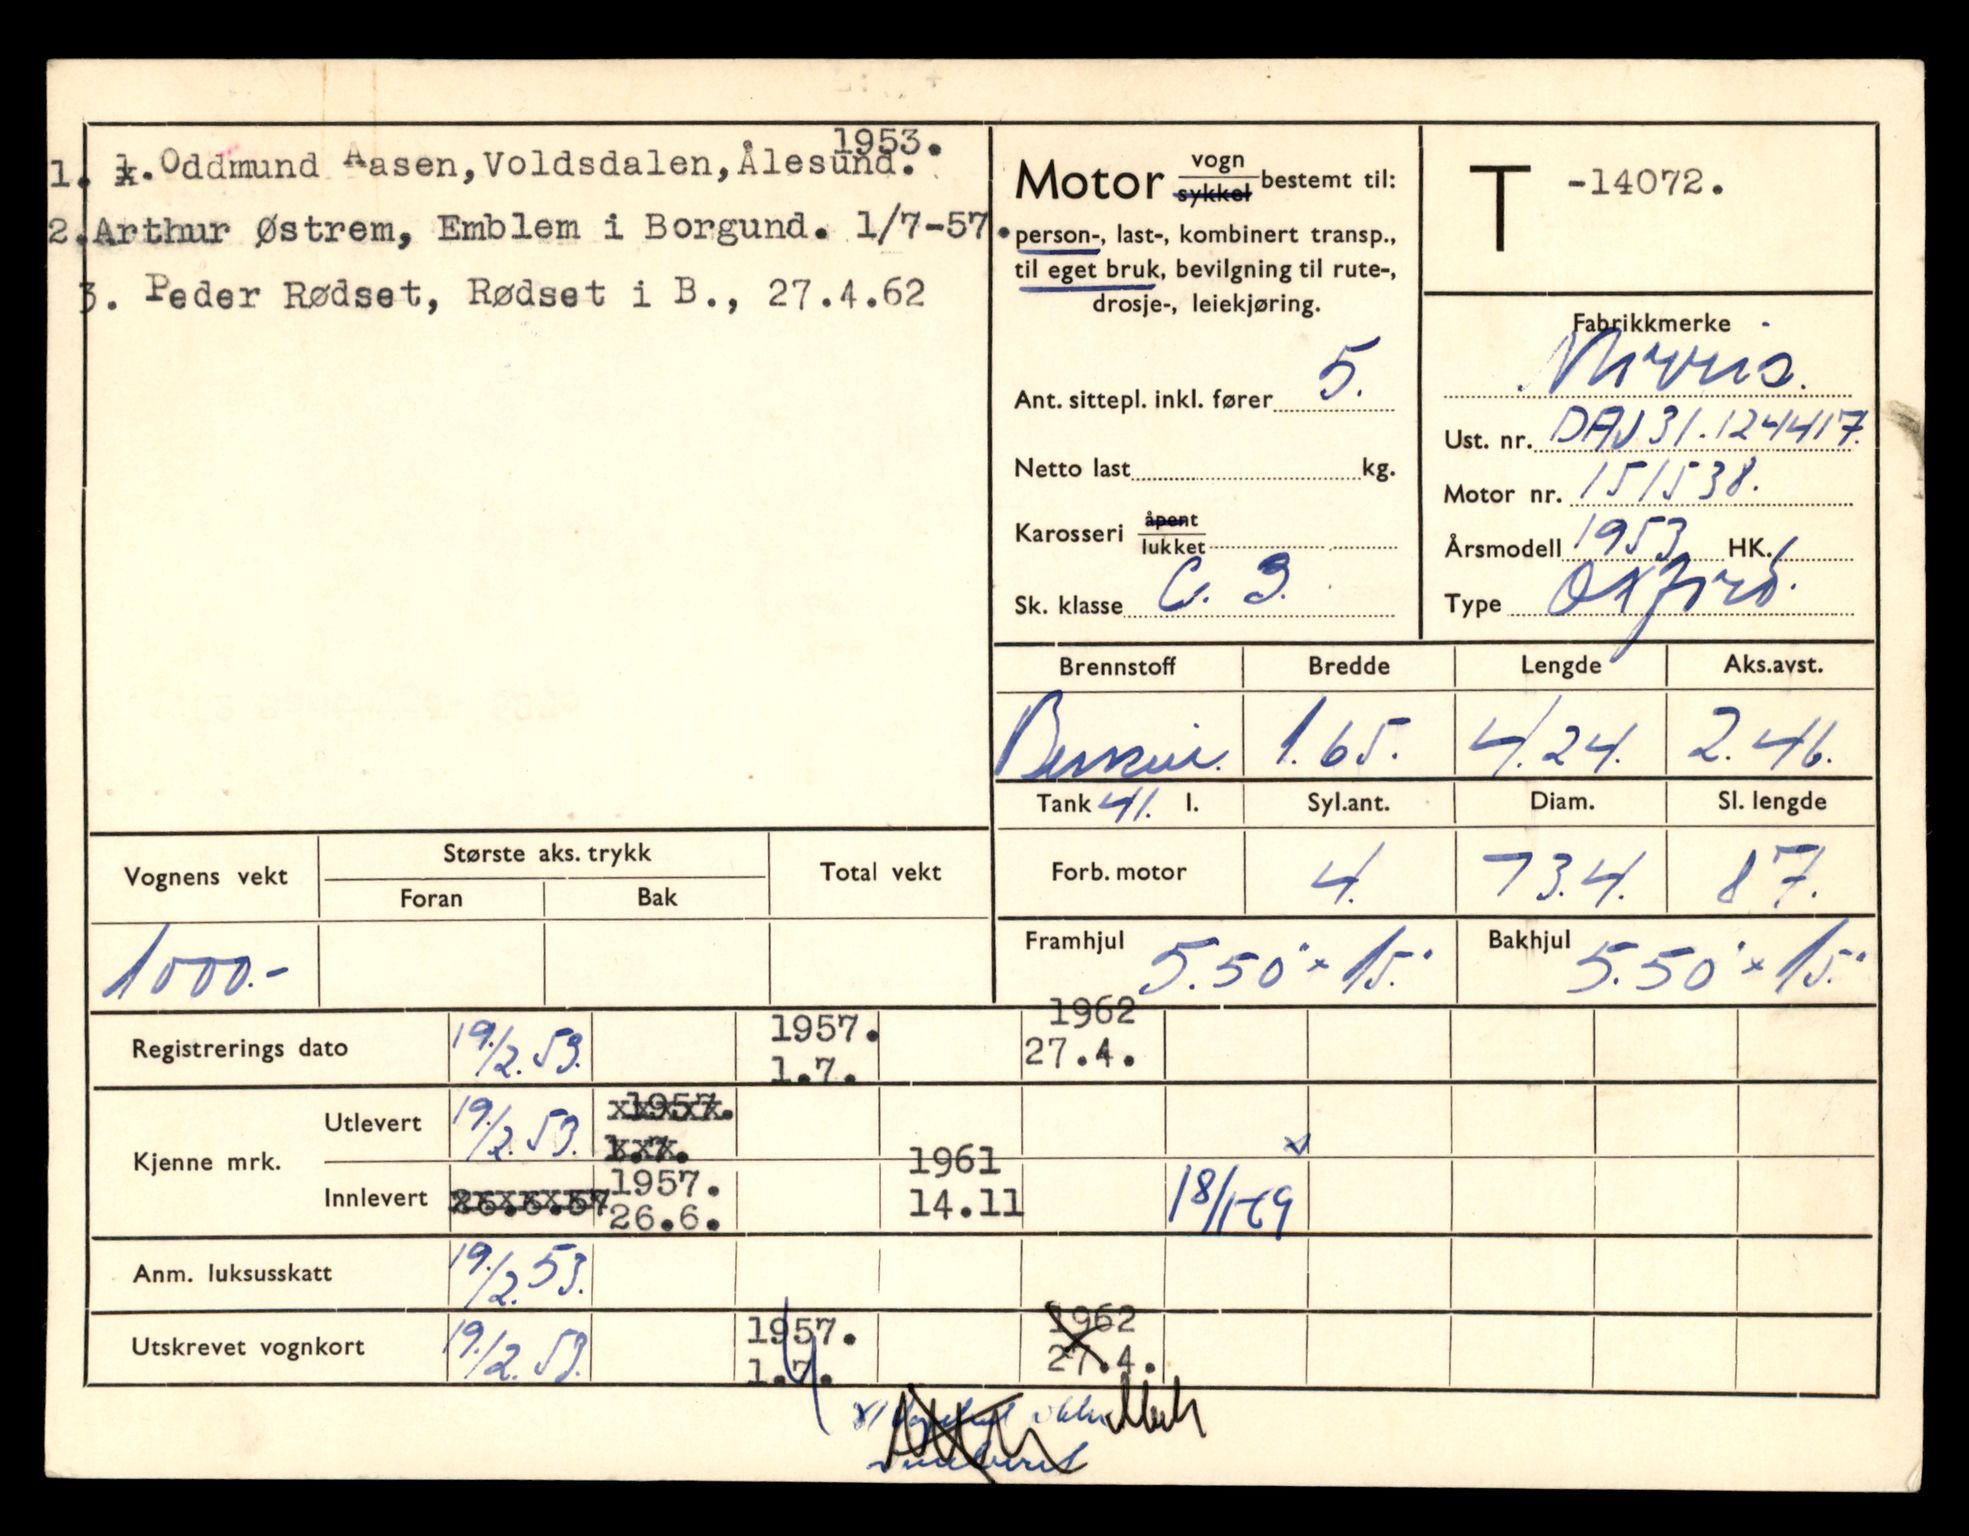 1953.
1. 1. Oddmund Aasen, Voldsdalen, Ålesund.
2. Arthur Østrem, Emblem i Borgund. 1/7-57.
3. Peder Rødset, Rødset i B., 27.4.62
Motor vogn sykkel bestemt til:
person-, last-, kombinert transp.,
til eget bruk, bevilgning til rute-,
drosje-, leiekjøring.
Ant. sittepl. inkl. fører 5.
Netto last kg.
Karosseri åpent lukket
Sk. klasse C. 3.
T -14072.
Fabrikkmerke
Morris.
Ust. nr. DAJ 31.124417.
Motor nr. 151538.
Årsmodell 1953 HK.
Type Oxford.
Brennstoff Bredde Lengde Aks.avst.
Bensin. 1.65. 4.24. 2.46.
Tank 41. l. Syl.ant. Diam. Sl. lengde
Forb. motor 4. 73.4. 87.
Framhjul 5.50" x 15." Bakhjul 5.50" x 15."
Vognens vekt Største aks. trykk Total vekt
Foran Bak
1000.-
Registrerings dato 19/2.53. 1957. 1.7. 1962 27.4.
Kjenne mrk.
Utlevert 19/2.53. 1957. 1.7.
Innlevert 26.6.57 1957. 26.6. 1961 14.11 18/1-69
Anm. luksusskatt 19/2.53.
Utskrevet vognkort 19/2.53. 1957. 1.7. 1962 27.4.